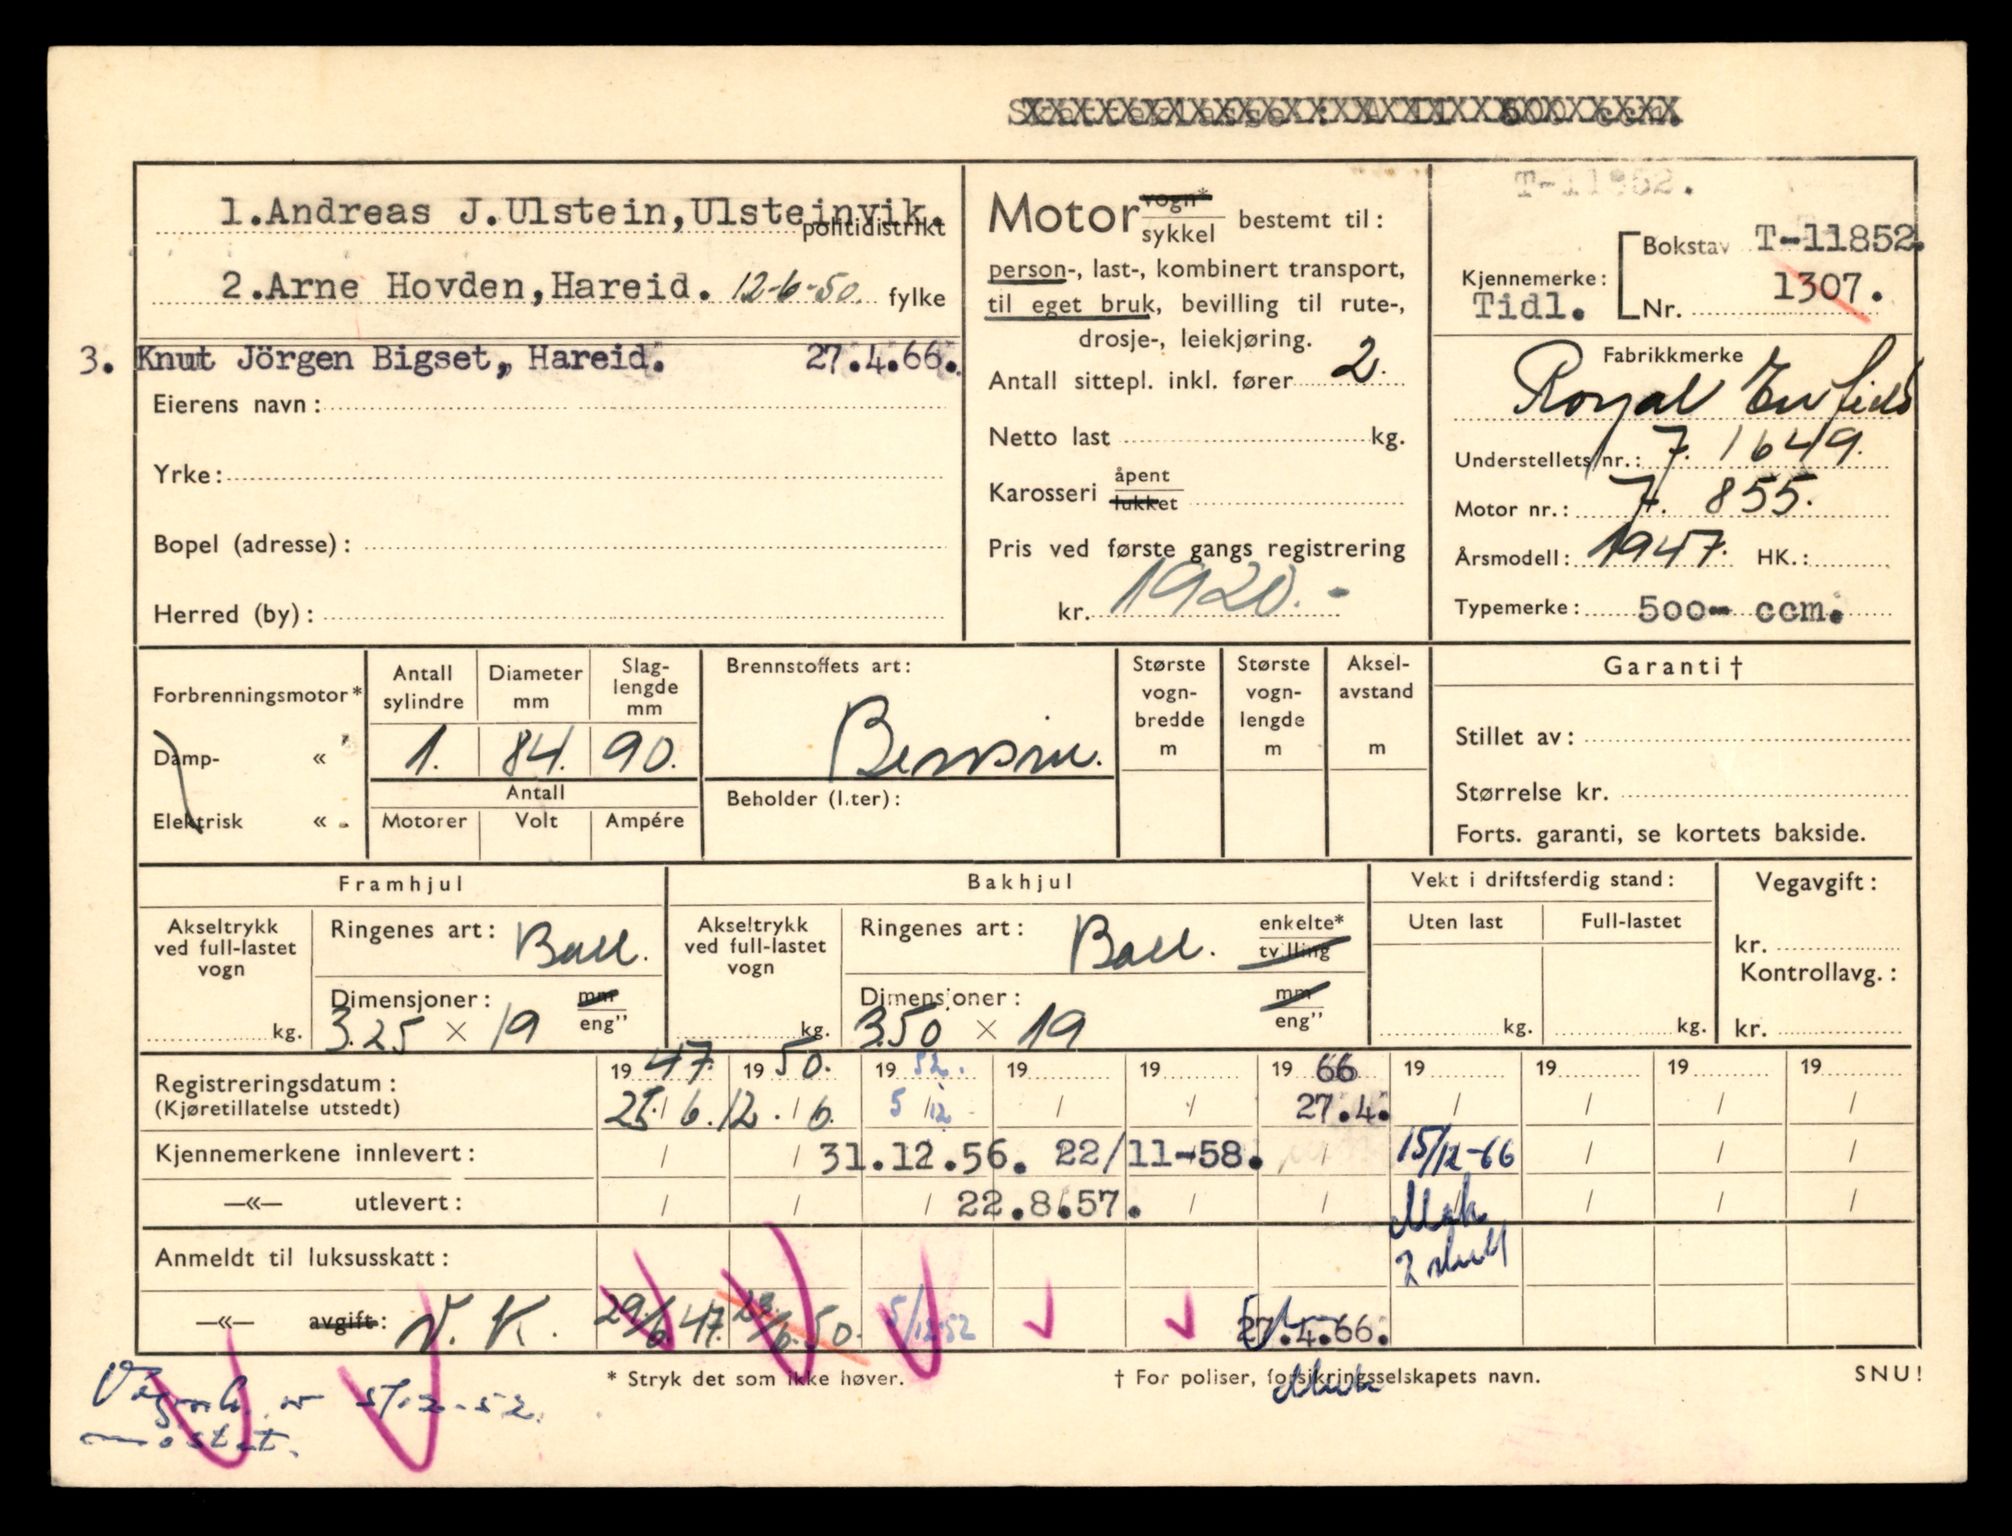 T-11852.
1.Andreas J.Ulstein,Ulsteinvik.
politidistrikt
2.Arne Hovden,Hareid. 12-6-50. fylke
3. Knut Jörgen Bigset, Hareid. 27.4.66.
Eierens navn:
Yrke:
Bopel (adresse):
Herred (by):
Motor vogn* sykkel bestemt til:
person-, last-, kombinert transport,
til eget bruk, bevilling til rute-,
drosje-, leiekjøring.
Antall sittepl. inkl. fører 2.
Netto last kg.
Karosseri åpent lukket
Pris ved første gangs registrering
kr. 1920.-
Bokstav T-11852.
Kjennemerke:
Tidl. Nr. 1307.
Fabrikkmerke
Royal Enfield
Understellets nr.: 7. 1649.
Motor nr.: 7. 855.
Årsmodell: 1947. HK.:
Typemerke: 500- ccm.
Forbrenningsmotor*
Damp- «
Elektrisk «
Antall sylindre
Diameter mm
Slag-lengde mm
1. 84. 90.
Antall
Motorer Volt Ampére
Brennstoffets art:
Bensin.
Beholder (liter):
Største vogn-bredde m
Største vogn-lengde m
Aksel-avstand m
Garanti†
Stillet av:
Størrelse kr.
Forts. garanti, se kortets bakside.
Framhjul
Akseltrykk ved full-lastet vogn
kg.
Ringenes art: Ball.
Dimensjoner: mm eng”
3.25 × 19
Bakhjul
Akseltrykk ved full-lastet vogn
kg.
Ringenes art: Ball. enkelte* tvilling
Dimensjoner: mm eng”
3.50 × 19
Vekt i driftsferdig stand:
Uten last Full-lastet
kg. kg.
Vegavgift:
kr.
Kontrollavg.:
kr.
19 47. 19 50. 19 52. 19 19 19 66 19 19 19 19
Registreringsdatum:
(Kjøretillatelse utstedt) 25./6. 12./6. 5/12 / / 27.4. / / / /
Kjennemerkene innlevert: / / 31.12.56. 22/11-58. / 15/12-66 / / /
—«— utlevert: / / / 22.8.57. / / / / /
Anmeldt til luksusskatt:
—«— avgift: V. K. 29/6.47. 23/6.50. 5/12.52 27.4.66.
* Stryk det som ikke høver. † For poliser, forsikringsselskapets navn. SNU!
5/12-52.